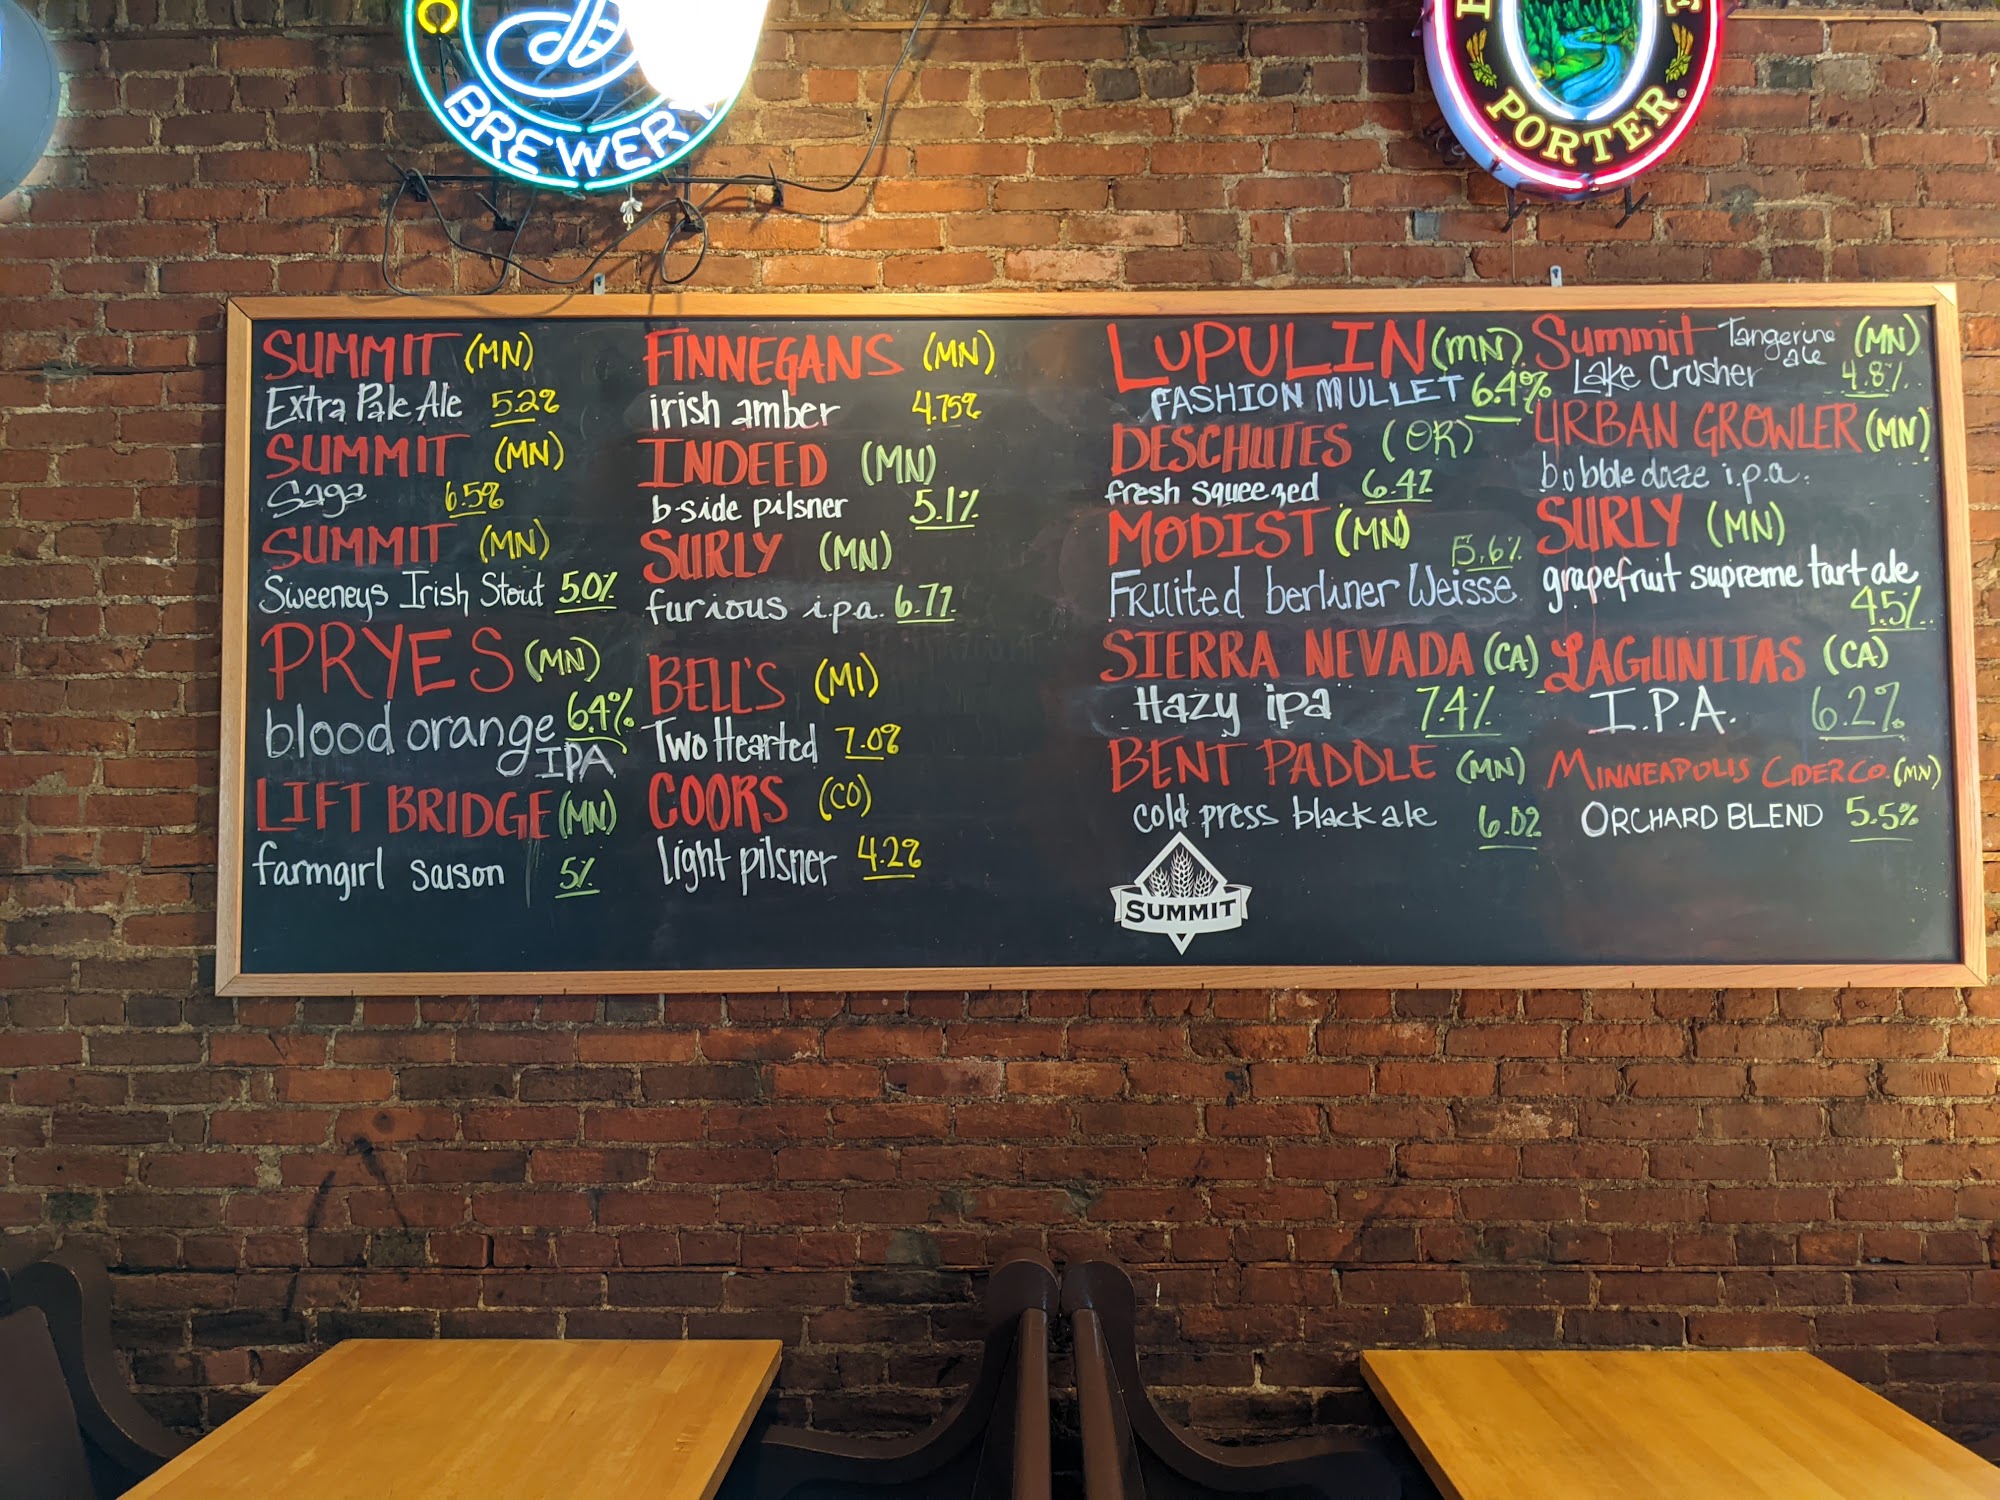 C
BREWERY
PORTER
SUMMIT (MN)
Extra Pale Ale 5.2%
SUMMIT (MN)
Saga 6.5%
SUMMIT (MN)
Sweeneys Irish Stout 5.0%
PRYES (MN)
blood orange 6.4%
IPA
LIFT BRIDGE (MN)
farmgirl saison 5%
FINNEGANS (MN)
irish amber 4.75%
INDEED (MN)
b-side pilsner 5.1%
SURLY (MN)
furious i.p.a. 6.7%
BELL'S (MI)
Two Hearted 7.0%
COORS (CO)
light pilsner 4.2%
LUPULIN (MN)
FASHION MULLET 6.4%
DESCHUTES (OR)
fresh squeezed 6.4%
MODIST (MN) 5.6%
FRUited berliner Weisse
SIERRA NEVADA (CA)
Hazy ipa 7.4%
BENT PADDLE (MN)
cold press black ale 6.0%
SUMMIT
Summit Tangerine ale (MN)
Lake Crusher 4.8%
URBAN GROWLER (MN)
bubble daze i.p.a.
SURLY (MN)
grapefruit supreme tart ale
4.5%
LAGUNITAS (CA)
I.P.A. 6.2%
MINNEAPOLIS CIDER CO. (MN)
ORCHARD BLEND 5.5%